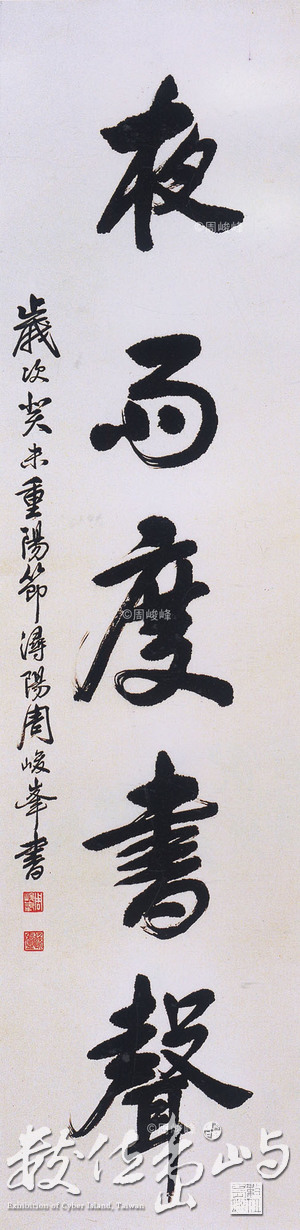 夜雨度書聲
歲次癸未重陽節潯陽周峻峯書
©周峻峰
©周峻峰
©周峻峰
數位島嶼
Exhibition of Cyber Island, Taiwan